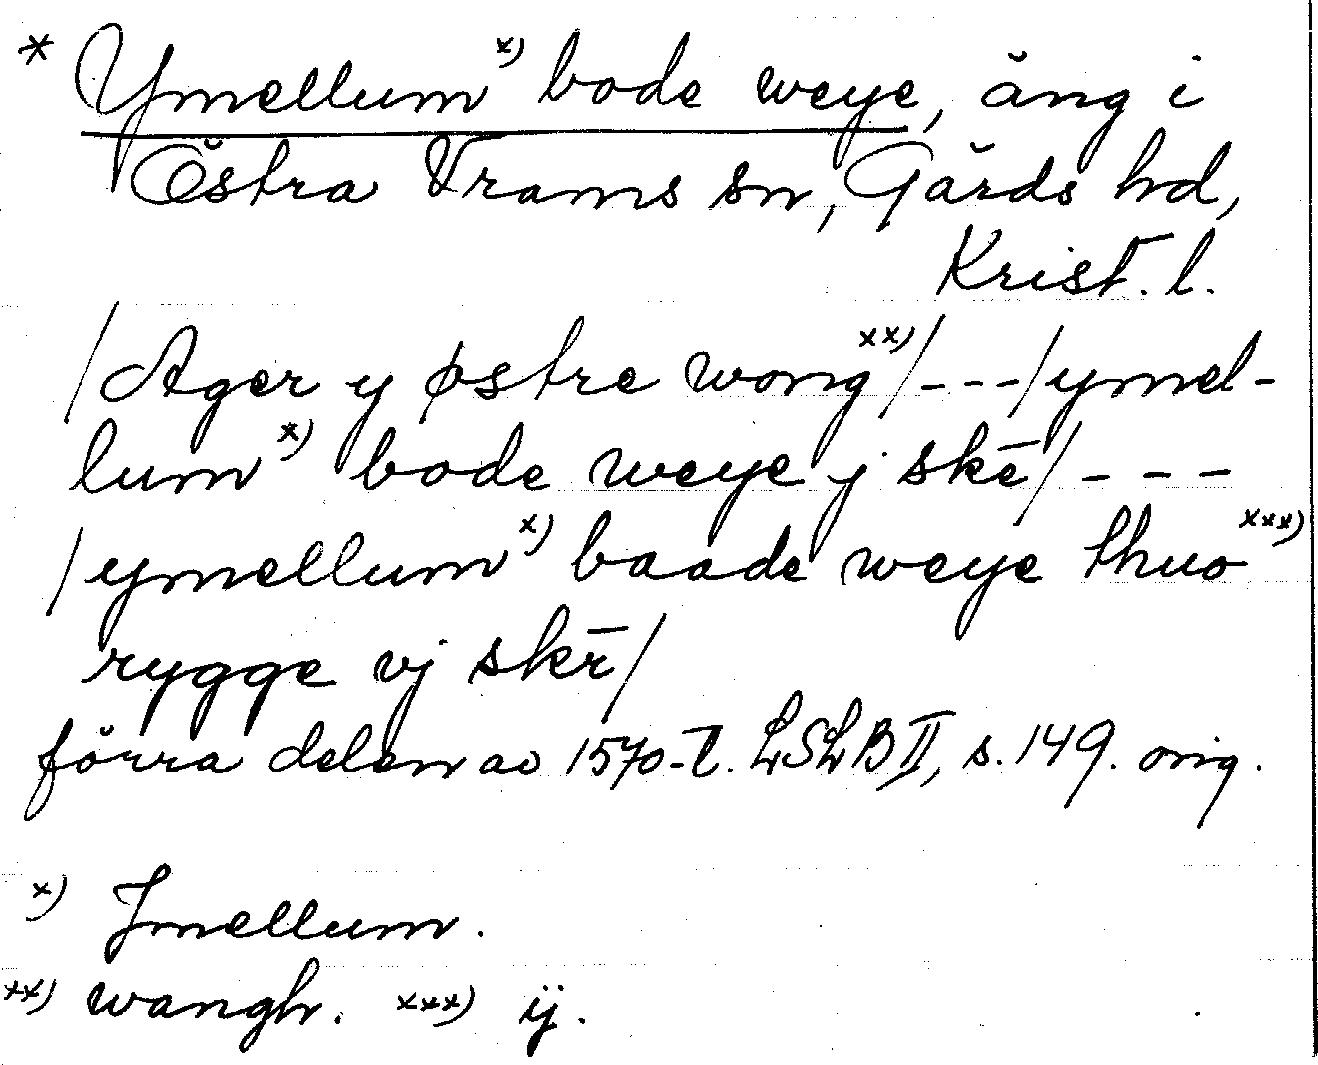 * Ymellum x) bode weye, äng i
Östra Vrams sn, Gärds hd,
Krist. l.
/Ager y østre wong xx)/---/ymel-
lum x) bode weye j skē/---
/ymellum x) baade weye thuo xxx)
rygge vj skr̄/
förra delen av 1570-t. LSLB II, s. 149. orig.
x) Jmellum.
xx) wangh. xxx) ij.